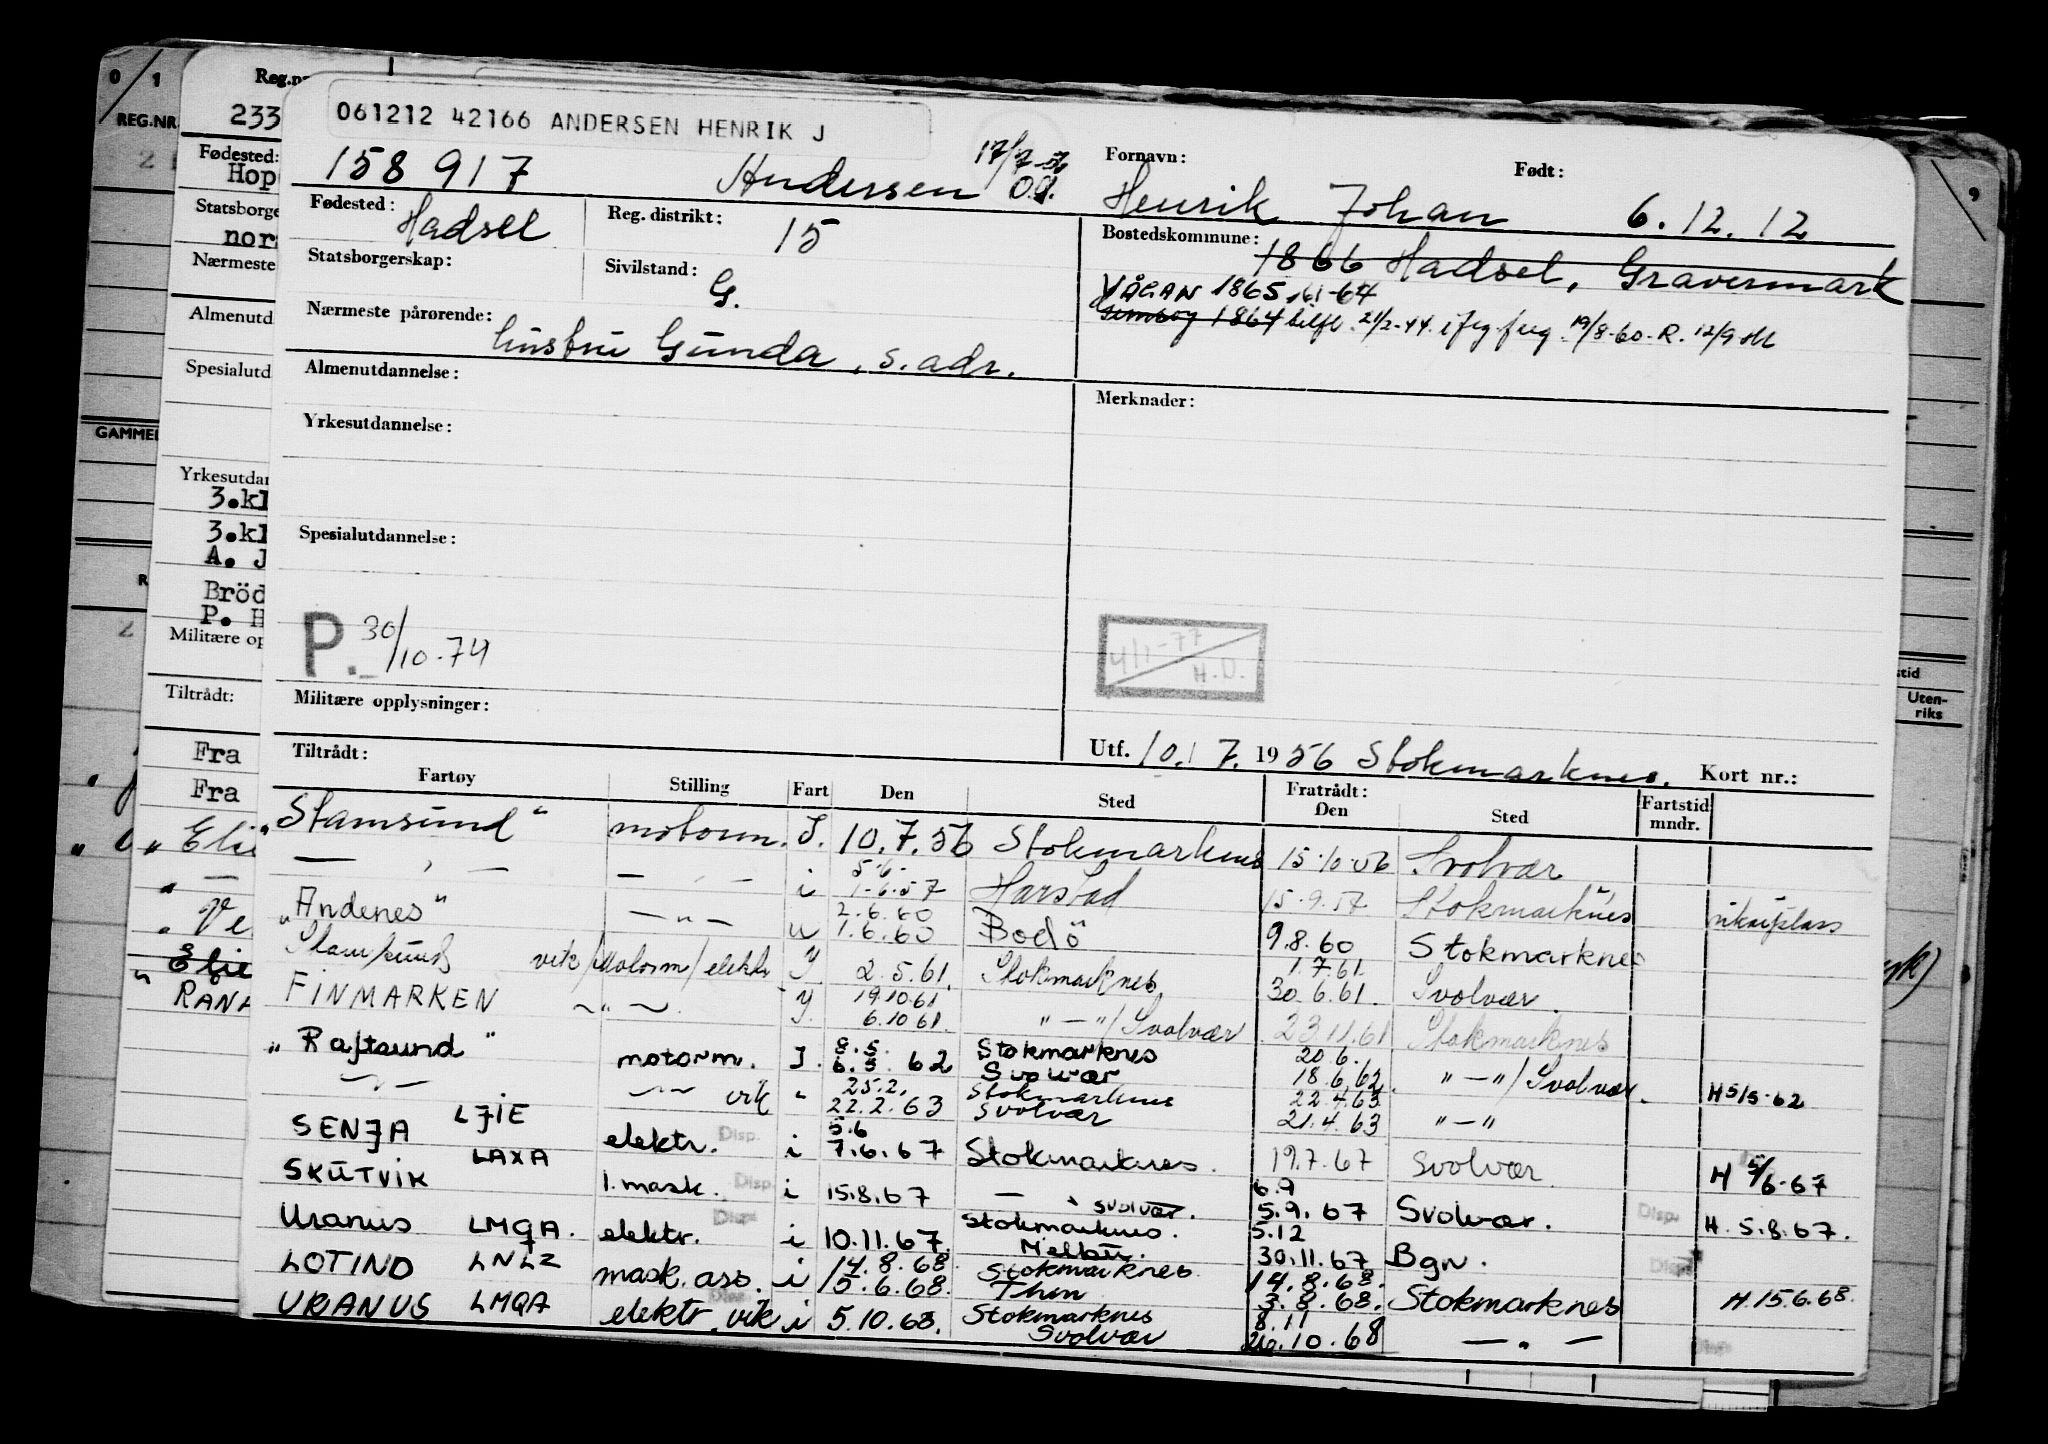 0/1
REG.NR.
Reg.nr
233
061212 42166 ANDERSEN HENRIK J
158 917 Andersen 17/7-56 Fornavn: Henrik Johan Født: 6.12.12
Fødested: Hadsel Reg. distrikt: 15 Bostedskommune: 1866 Hadsel, Gravermark
Statsborgerskap: Sivilstand: G. VÅGAN 1865 61-64
1864 21/2-44. 19/8-60-R. 12/9
Nærmeste pårørende: hustru Gunda, s. adr.
Almenutdannelse: Merknader:
Yrkesutdannelse:
Spesialutdannelse:
P. 30/10-74 4/1-77 H.O.
Militære opplysninger:
Utf. 10. 7. 1956 Stokmarknes. Kort nr.:
Tiltrådt: Fratrådt:
Fartøy Stilling Fart Den Sted Den Sted Fartstid mndr.
Stamsund" motorm. I. 10.7.56 Stokmarknes 15.10.56 Svolvær
— " — — " — i 5.6. 1.6.57 Harstad 15.9.57 Stokmarknes
"Andenes" — " — u 2.6.60 1.6.60 Bodö 9.8.60 Stokmarknes
Stamsund vik/motorm/elektr I 2.5.61. Stokmarknes 1.7.61 30.6.61. Svolvær
FINMARKEN ~ " ~ I. 19.10.61 6.10.61. " — "/Svolvær 23.11.61 Stokmarknes
"Raftsund" motorm. I. 8.5. 6.5.62 Stokmarknes Svolvær 20.6. 18.6.62. " — "/Svolvær. H5/5-62
— " — — " — vik " 25.2. 22.2.63 Stokmarknes Svolvær 22.4.63 21.4.63 " — "
SENJA LJIE elektr. Disp. i 5.6 7.6.67 Stokmarknes. 19.7.67 Svolvær. H 5/6-67
SKUTVIK LAXA 1.mask. Disp. i 15.8.67 — " Svolvær. 6.9 5.9.67 Svolvær. Disp. H. 5.8.67.
Uranus LMQA. elektr. Disp. i 10.11.67. Stokmarknes. Melbu. 5.12 30.11.67 Bgn. Disp.
LOTIND LNLZ mask. ass. i 14.8.68. 15.6.68. Stokmarknes Thm 14.8.68. 3.8.68. Stokmarknes H.15.6.68.
URANUS LMQA elektr. vik Disp. i 5.10.68. Stokmarknes Svolvær 8.11 26.10.68 — " — Disp.
Fødested:
Hop
Statsborge
nor
Nærmeste
Almenutd
Spesialutd
GAMMEL
Yrkesutdan
3.kl
3.kl
A. J
Bröd
P. H
Militære op
Tiltrådt:
Fra
Fra
" Elie
" —
" Ve
Elie
" RANA
stid
Uten-
riks